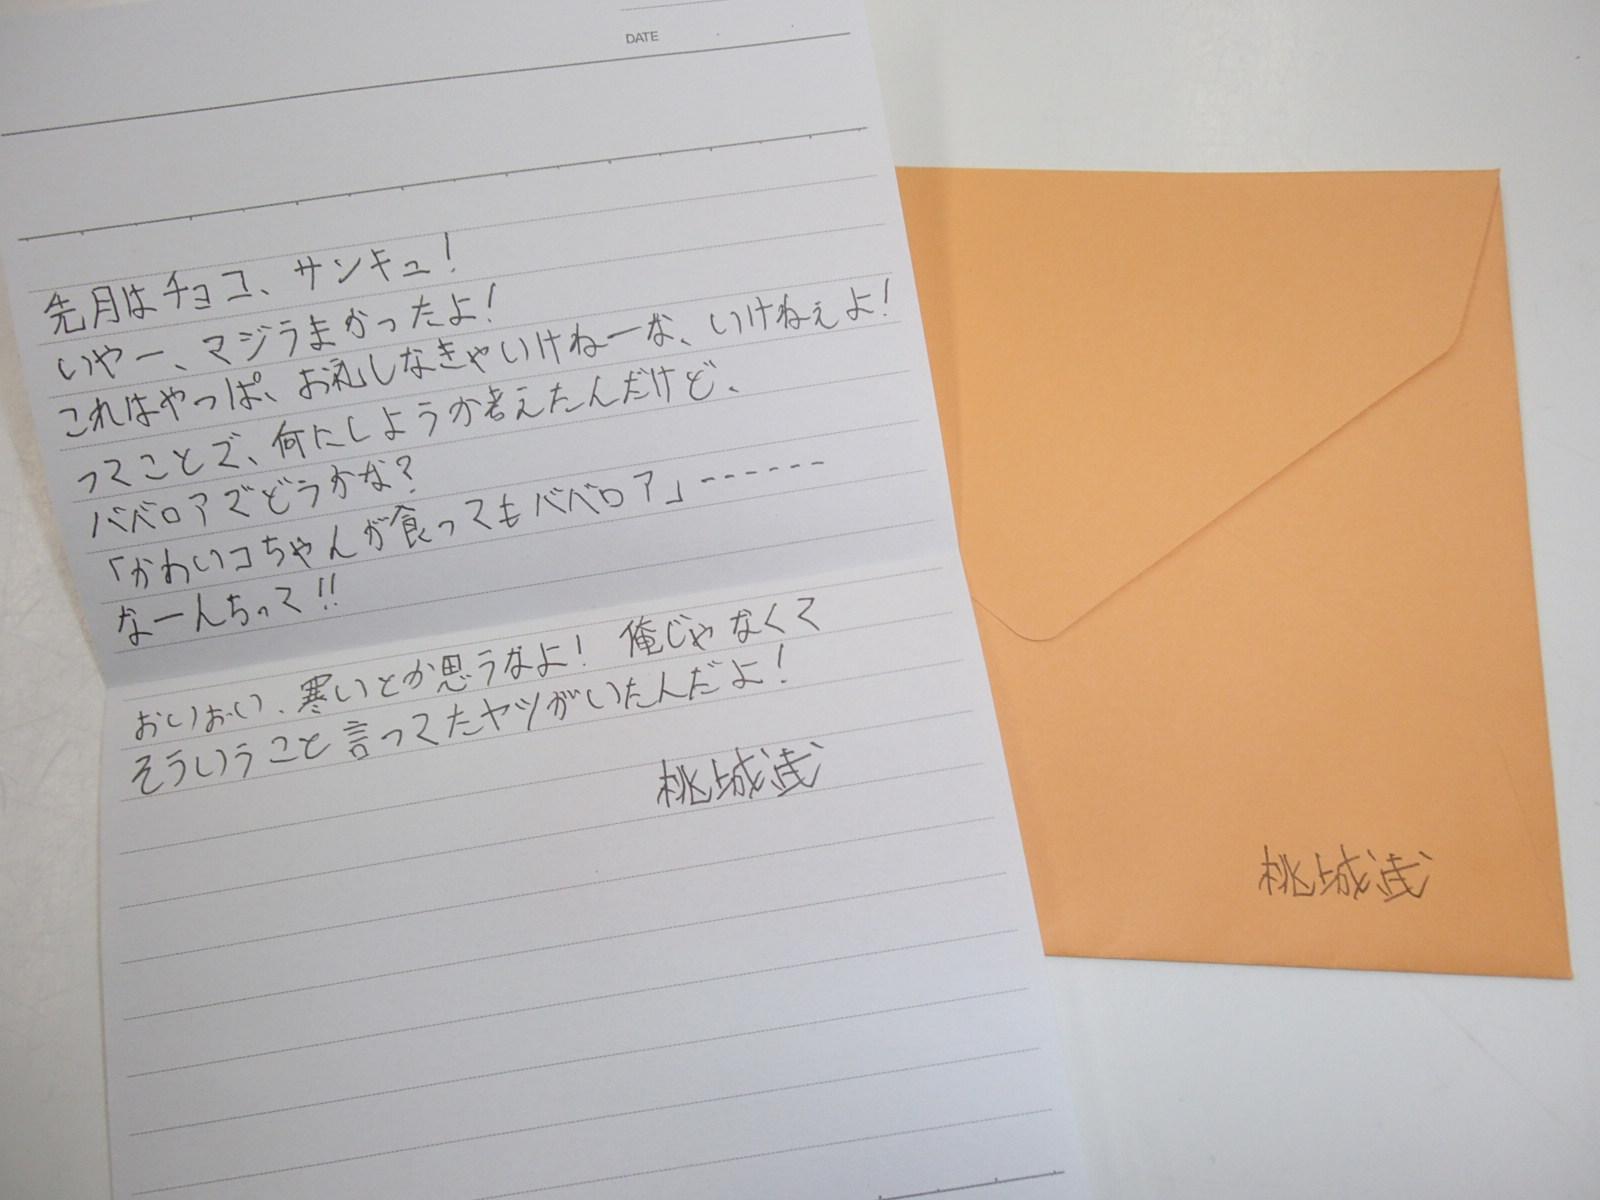 DATE
先月はチョコ、サンキュ!
いやー、マジうまかったよ!
これはやっぱ、お礼しなきゃいけねーな、いけねぇよ!
ってことで、何にしようか考えたんだけど、
ババロアでどうかな?
「かわいコちゃんが食ってもババロア」------
なーんちって!!
おいおい、寒いとか思うなよ! 俺じゃなくて
そういうこと言ってたヤツがいたんだよ!
桃城武
桃城武